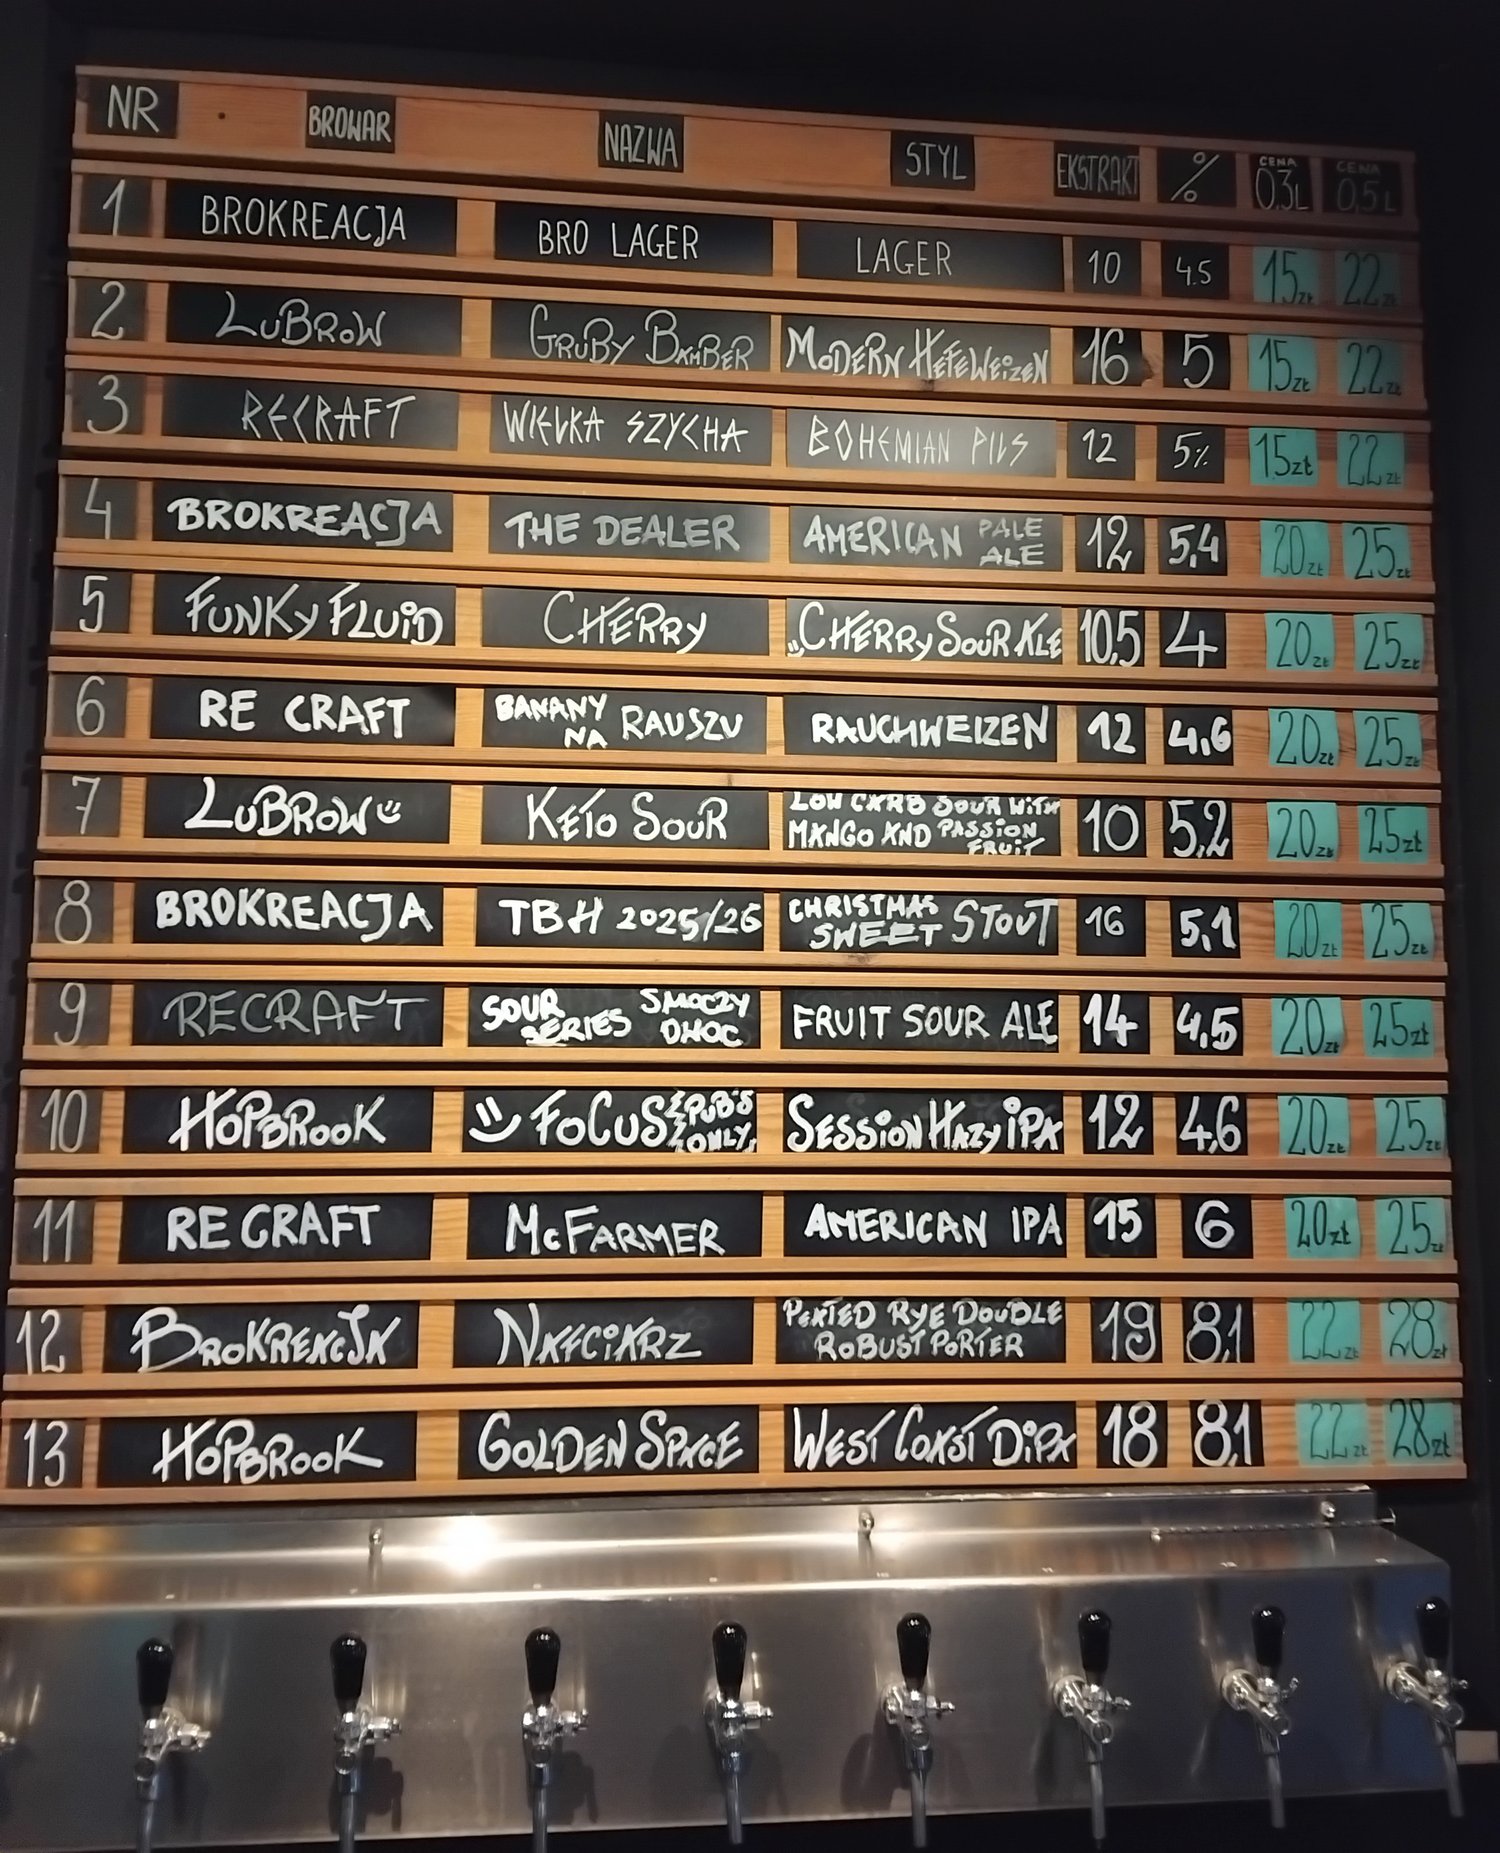 NR BROWAR NAZWA STYL EKSTRAKT % CENA 0,3L CENA 0,5L
1 BROKREACJA BRO LAGER LAGER 10 4.5 15zł 22zł
2 LUBROW GRUBY BAMBER MODERN HEFEWEIZEN 16 5 15zł 22zł
3 RECRAFT WIELKA SZYCHA BOHEMIAN PILS 12 5% 15zł 22zł
4 BROKREACJA THE DEALER AMERICAN PALE ALE 12 5,4 20zł 25zł
5 FUNKY FLUID CHERRY CHERRY SOUR ALE 10,5 4 20zł 25zł
6 RE CRAFT BANANY NA RAUSZU RAUCHWEIZEN 12 4,6 20zł 25zł
7 LUBROW KETO SOUR LOW CARB SOUR WITH MANGO AND PASSION FRUIT 10 5,2 20zł 25zł
8 BROKREACJA TBH 2025/26 CHRISTMAS SWEET STOUT 16 5,1 20zł 25zł
9 RECRAFT SOUR SERIES SMOCZY OHOC FRUIT SOUR ALE 14 4,5 20zł 25zł
10 HOPBROOK FOCUS PUB'S ONLY SESSION HAZY IPA 12 4,6 20zł 25zł
11 RE CRAFT MCFARMER AMERICAN IPA 15 6 20zł 25zł
12 BROKREACJA NAFCIARZ PEATED RYE DOUBLE ROBUST PORTER 19 8,1 22zł 28zł
13 HOPBROOK GOLDEN SPACE WEST COAST DIPA 18 8,1 22zł 28zł